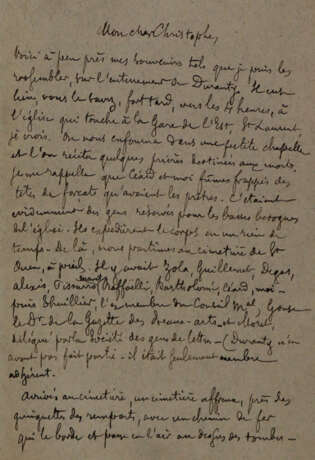 Mon cher Christophe,
Voici à peu près mes souvenirs tels que je puis les
rassembler, sur l'enterrement de Duranty. Il eut
lieu, vous le savez, fort tard, vers les 4 heures, à
l'église qui touche à la Gare de l'Est, St Laurent,
je crois. On nous enfourna dans une petite chapelle
et l'on récita quelques prières destinées aux morts.
Je me rappelle que Céard et moi fûmes frappés des
têtes de forçats qu'avaient les prêtres. C'étaient
évidemment des gens réservés pour les basses besognes
de l'église. Ils expédièrent le corps en un rien de
temps - de là, nous partîmes au cimetière de St
Ouen, à pied. Il y avait Zola, Guillemet, Degas,
Alexis, Raffaëlli, Bartholomé, Céard, moi -
puis Thuillier, l'ex membre du Conseil Mal,
le Dr de la Gazette des beaux-arts, et
délégué par la société des gens de lettres - (Duranty n'en
avait pas fait partie - il était seulement membre
adhérent.
Arrivés au cimetière, un cimetière affreux, près des
guinguettes des remparts, avec un chemin de fer
qui le borde et passe en l'air au dessus des tombes -